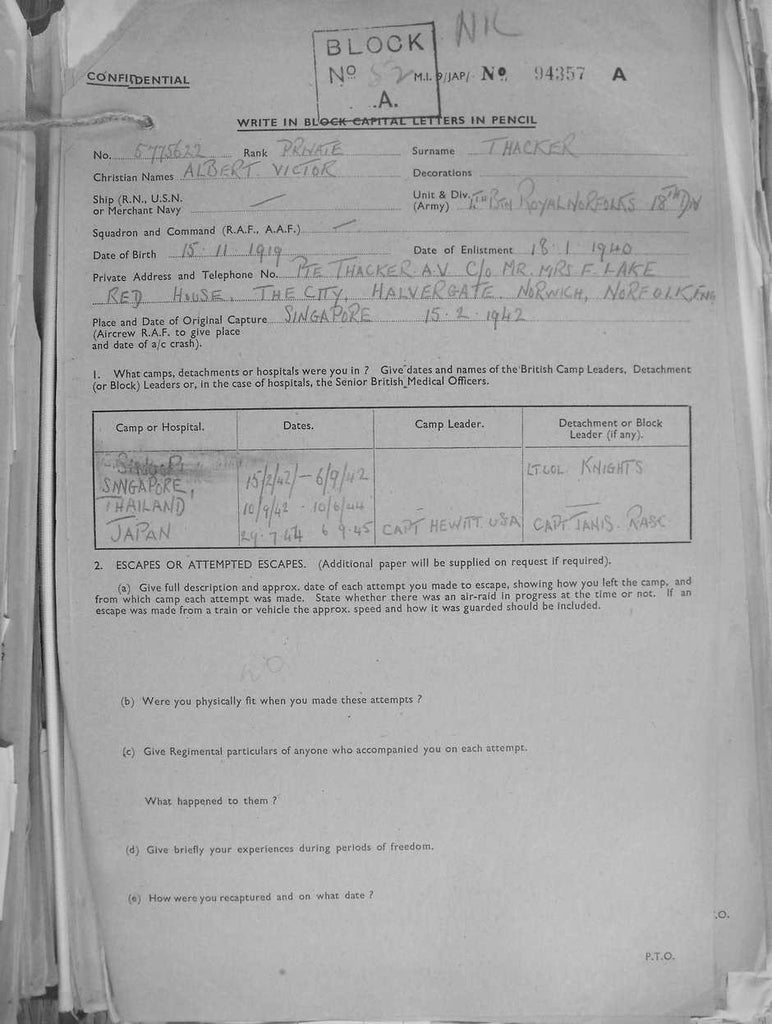 NIL
BLOCK
Nº 52
.A.
CONFIDENTIAL
M.I. 9/JAP/- Nº. 94357 A
WRITE IN BLOCK CAPITAL LETTERS IN PENCIL
No. 5775622 Rank PRIVATE Surname THACKER
Christian Names ALBERT VICTOR Decorations
Ship (R.N., U.S.N. or Merchant Navy
Unit & Div. (Army) BTN ROYAL NORFOLKS 18TH DIV
Squadron and Command (R.A.F., A.A.F.)
Date of Birth 15. 11. 1919 Date of Enlistment 18. 1. 1940
Private Address and Telephone No. PTE THACKER A.V C/o MR. MRS F. LAKE
RED HOUSE. THE CITY, HALVERGATE. NORWICH, NORFOLK, ENG
Place and Date of Original Capture SINGAPORE 15. 2. 1942
(Aircrew R.A.F. to give place
and date of a/c crash).
1. What camps, detachments or hospitals were you in ? Give dates and names of the British Camp Leaders, Detachment
(or Block) Leaders or, in the case of hospitals, the Senior British Medical Officers.
Camp or Hospital. Dates. Camp Leader. Detachment or Block
Leader (if any).
SINGAPORE, 15/2/42/-6/9/42 LT COL KNIGHTS
THAILAND 10/9/42 - 10/6/44
JAPAN 29.7.44 6 9.45 CAPT HEWITT USA CAPT JANIS. RASC
2. ESCAPES OR ATTEMPTED ESCAPES. (Additional paper will be supplied on request if required).
(a) Give full description and approx. date of each attempt you made to escape, showing how you left the camp, and
from which camp each attempt was made. State whether there was an air-raid in progress at the time or not. If an
escape was made from a train or vehicle the approx. speed and how it was guarded should be included.
NO
(b) Were you physically fit when you made these attempts ?
(c) Give Regimental particulars of anyone who accompanied you on each attempt.
What happened to them ?
(d) Give briefly your experiences during periods of freedom.
(e) How were you recaptured and on what date ?
.O.
P.T.O.